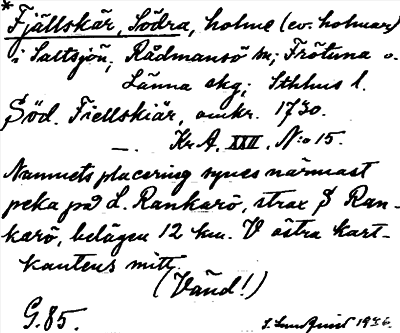 * Fjällskär, Södra, holme (ev. holmar)
i Saltsjön, Rådmansö sn; Frötuna o.
Länna skg; Sthlms l.
Söd. Fiellskiär, omkr. 1730.
—. Kr. A. XXII, N:o 15.
Namnets placering synes närmast
peka på L. Rankarö, strax S Ran-
karö, belägen 12 km. V östra kart-
kantens mitt.
(Vänd!)
G. 85.
1936.